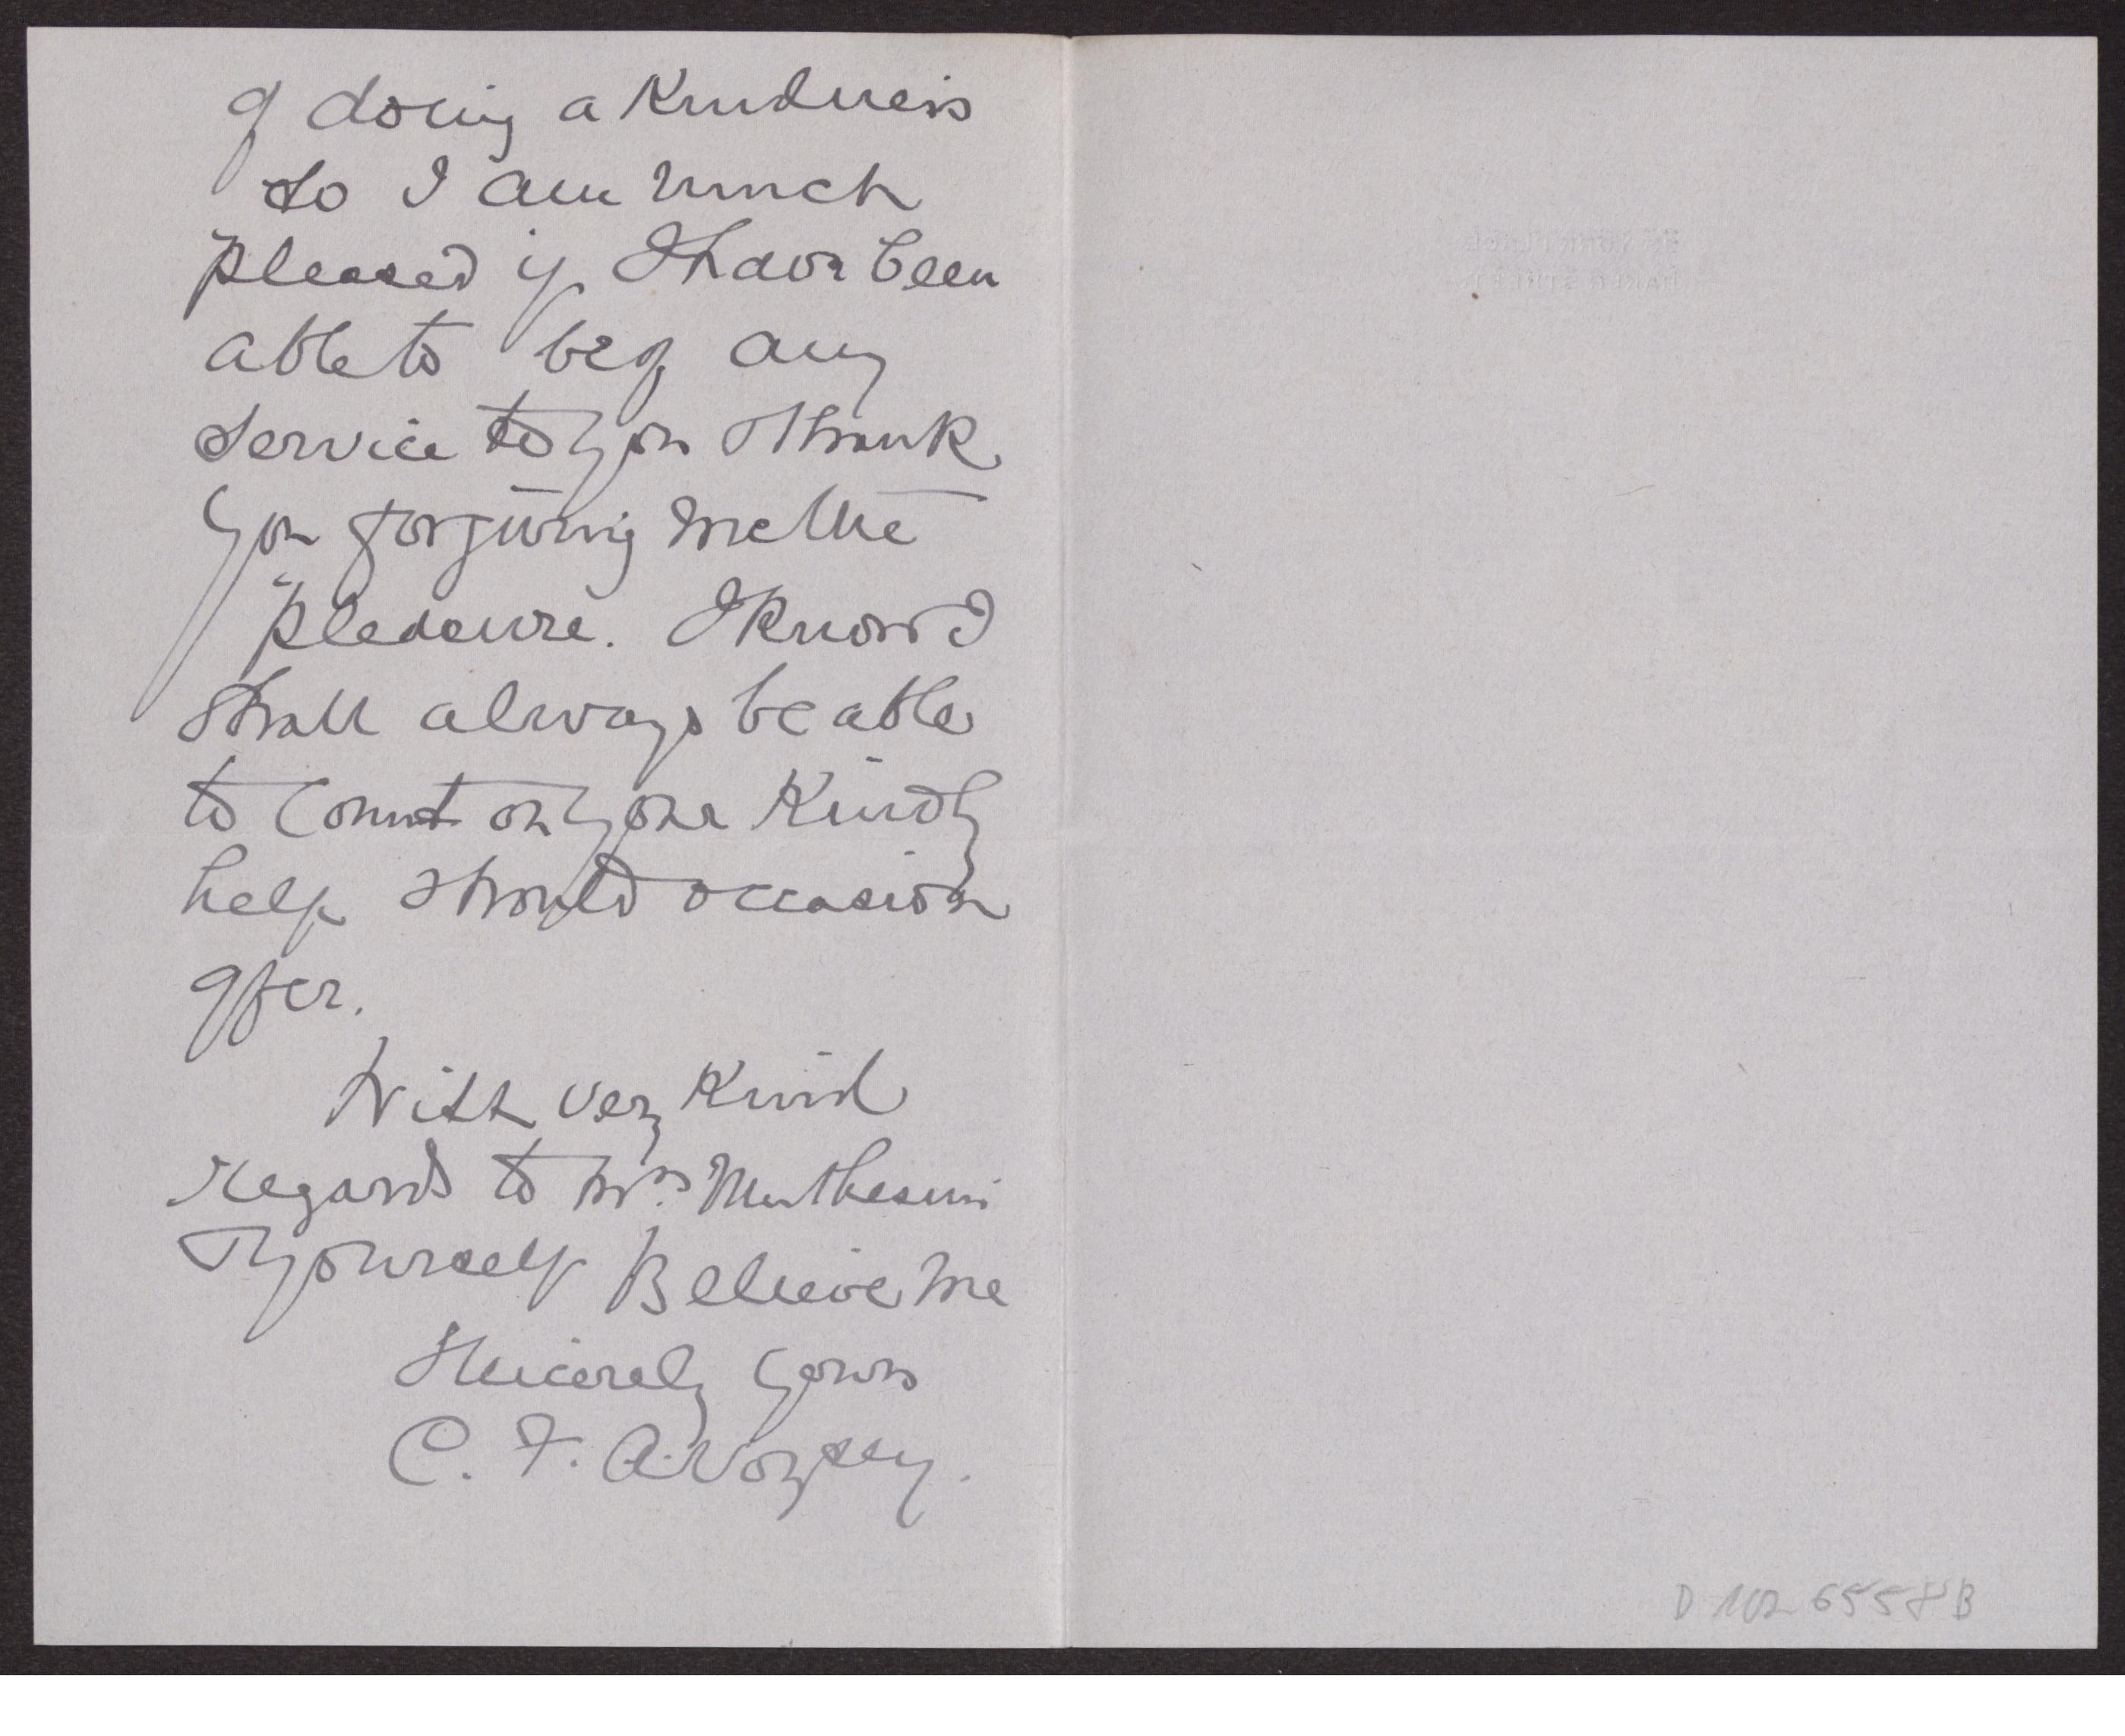 of doing a Kindness
so I am much
pleased if I have been
able to be of any
service to you Thank
you for giving me the
pleasure. I know I
shall always be able
to count on your Kindly
help should occasion
offer.
With very Kind
regards to Mrs. Muthesius
& yourself Believe me
Sincerely yours
C. F. A. Voysey.
YORK PLACE
BAKER STREET
D 102 6558 B